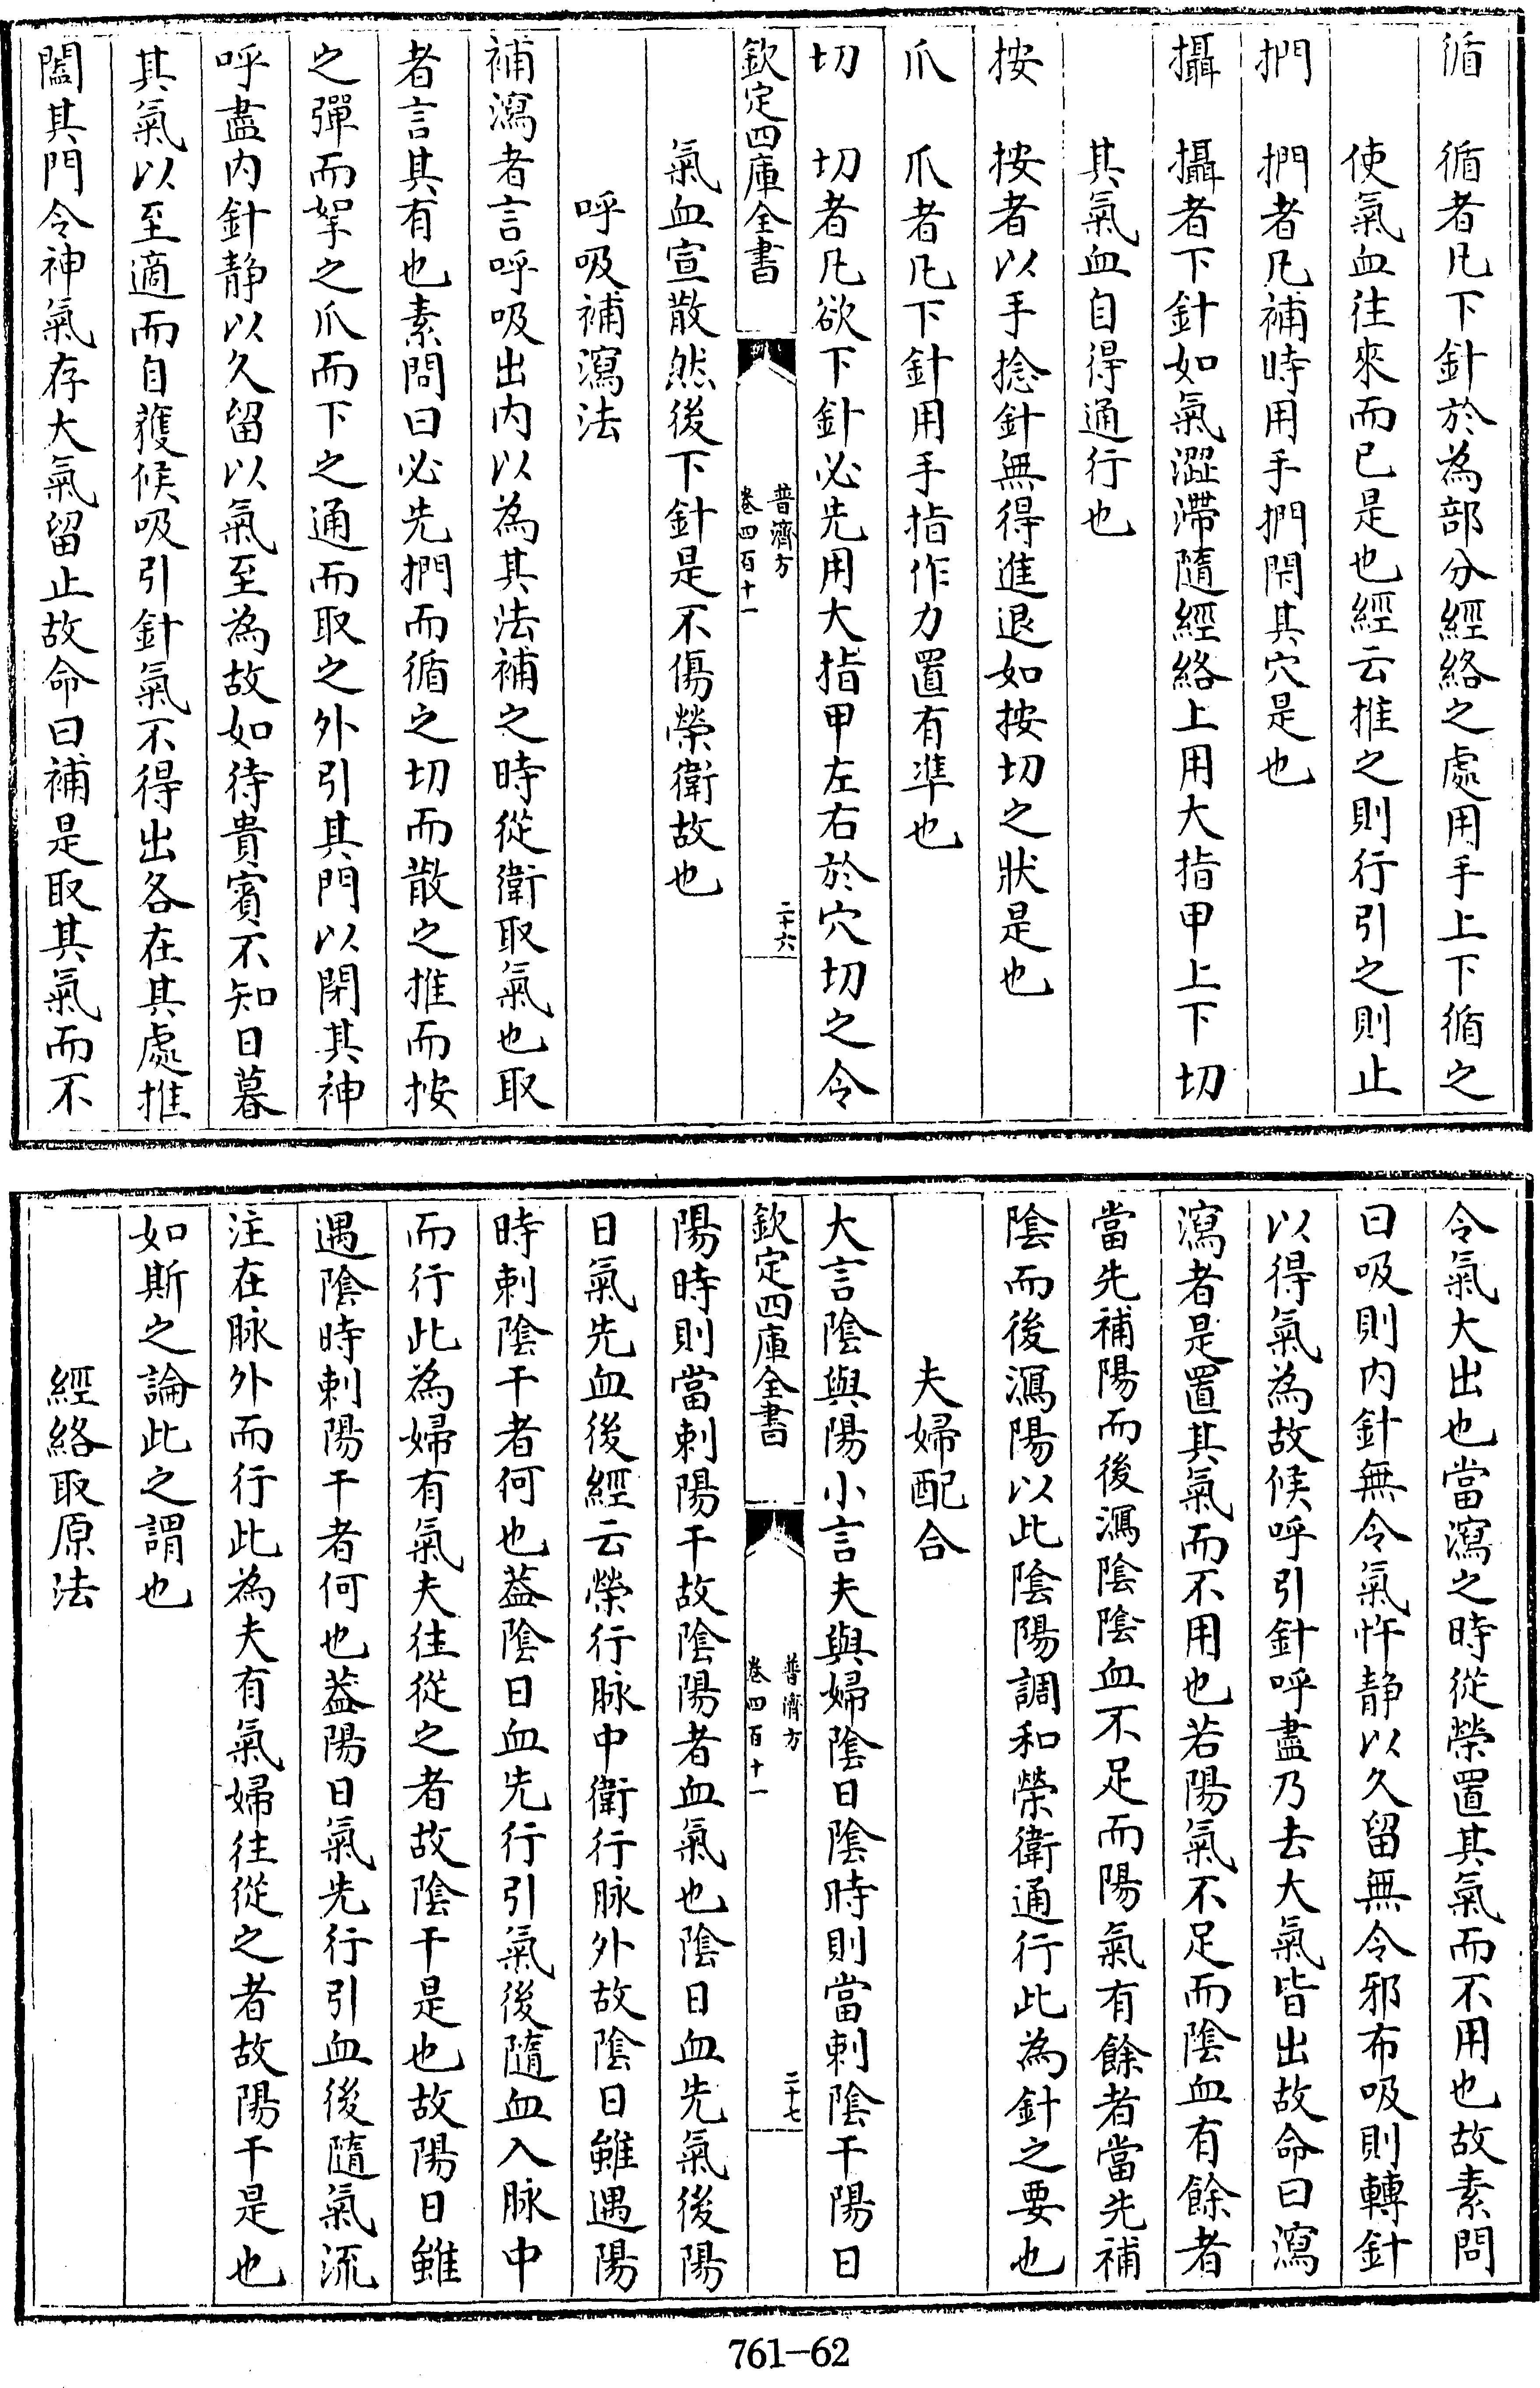 循　循者凡下針於為部分經絡之處用手上下循之
使氣血往來而已是也經云推之則行引之則止
捫　捫者凡補時用手捫閉其穴是也
攝　攝者下針如氣澀滯隨經絡上用大指甲上下切
其氣血自得通行也
按　按者以手捻針無得進退如按切之狀是也
爪　爪者凡下針用手指作力置有準也
切　切者凡欲下針必先用大指甲左右於穴切之令
欽定四庫全書
普濟方
卷四百十一
二十六
氣血宣散然後下針是不傷榮衛故也
呼吸補瀉法
補瀉者言呼吸出内以為其法補之時從衛取氣也取
者言其有也素問曰必先捫而循之切而散之推而按
之彈而拏之爪而下之通而取之外引其門以閉其神
呼盡内針静以久留以氣至為故如待貴賓不知日暮
其氣以至適而自護候吸引針氣不得出各在其處推
闔其門令神氣存大氣留止故命曰補是取其氣而不
令氣大出也當瀉之時從榮置其氣而不用也故素問
曰吸則内針無令氣忤静以久留無令邪布吸則轉針
以得氣為故候呼引針呼盡乃去大氣皆出故命曰瀉
瀉者是置其氣而不用也若陽氣不足而陰血有餘者
當先補陽而後瀉陰陰血不足而陽氣有餘者當先補
陰而後瀉陽以此陰陽調和榮衛通行此為針之要也
夫婦配合
大言陰與陽小言夫與婦陰日陰時則當刺陰干陽日
欽定四庫全書
普濟方
卷四百十一
二十七
陽時則當刺陽干故陰陽者血氣也陰日血先氣後陽
日氣先血後經云榮行脉中衛行脉外故陰日雖遇陽
時刺陰干者何也葢陰日血先行引氣後隨血入脉中
而行此為婦有氣夫往從之者故陰干是也故陽日雖
遇陰時刺陽干者何也葢陽日氣先行引血後隨氣流
注在脉外而行此為夫有氣婦往從之者故陽干是也
如斯之論此之謂也
經絡取原法
761-62